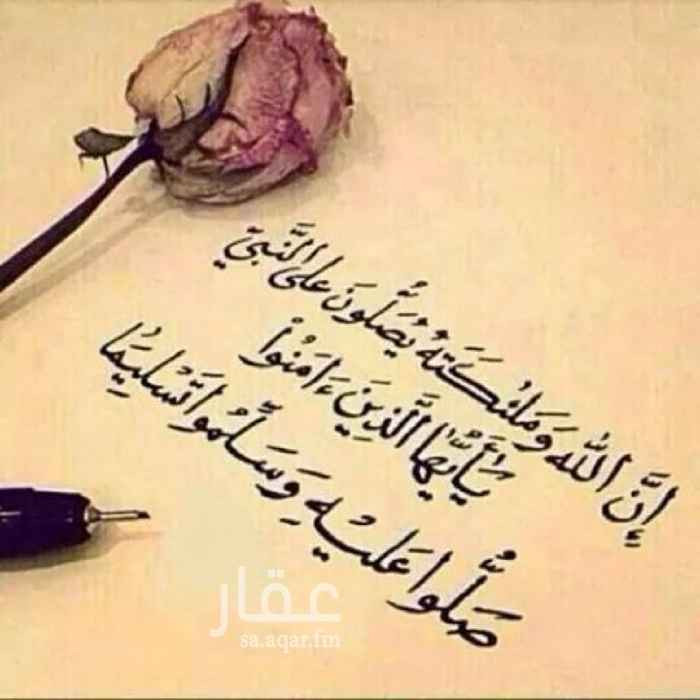 إِنَّ اللَّهَ وَمَلَٰئِكَتَهُ يُصَلُّونَ عَلَى النَّبِيِّ
يَٰأَيُّهَا الَّذِينَ ءَامَنُوا۟
صَلُّوا عَلَيْهِ وَسَلِّمُوا تَسْلِيمًا
عقار
sa.aqar.fm